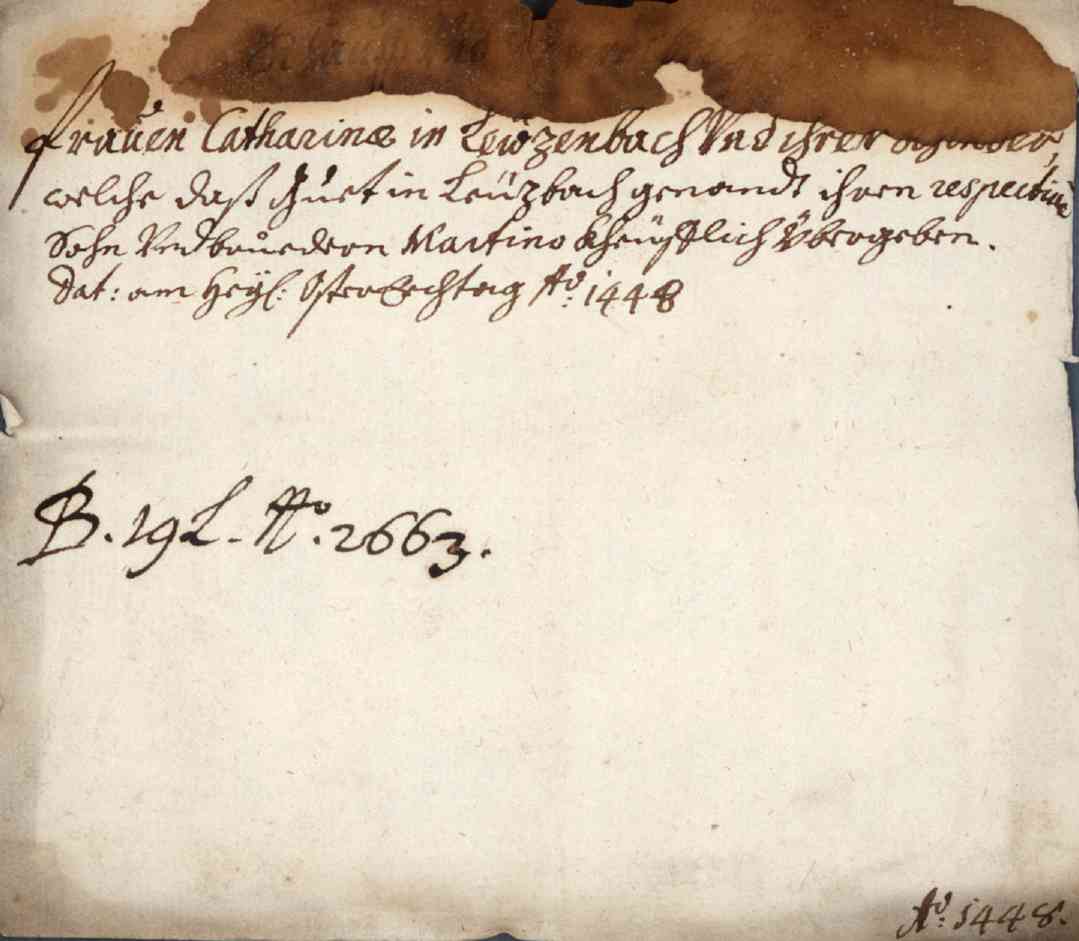 frauen Catharinæ in Leüzenbach Vnd ihrer
welche daß guet in Leüzbach genandt ihren respective
Sohn Vnd bruedern Martino kheüfflich Übergeben.
Dat: am Heyl: Osterfechtag Aō: 1448
B. 19 L. No. 2663.
Aō: 1448.